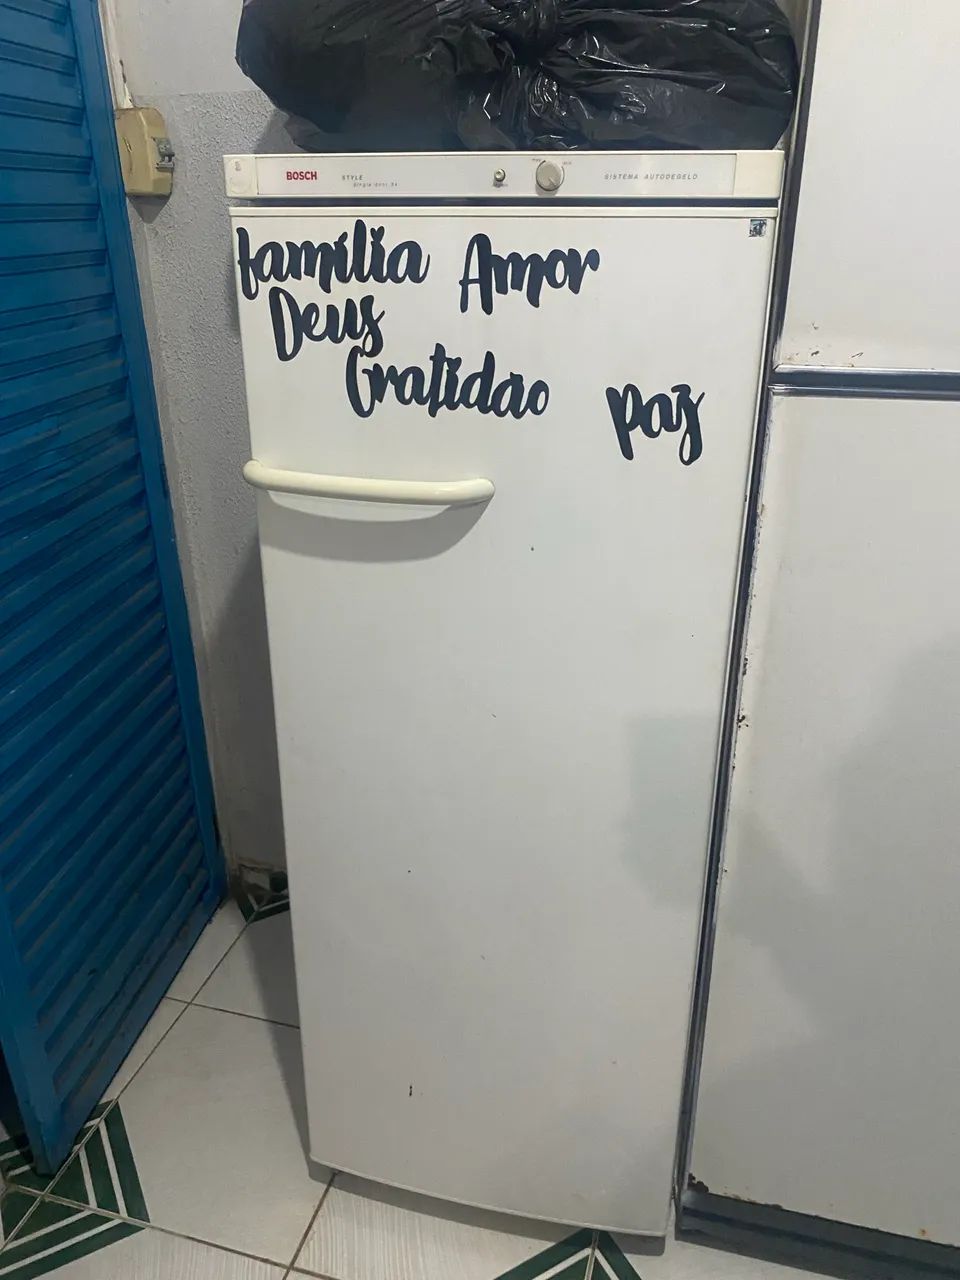 BOSCH
STYLE
SISTEMA AUTODEGELO
família Amor
Deus
Gratidão
paz